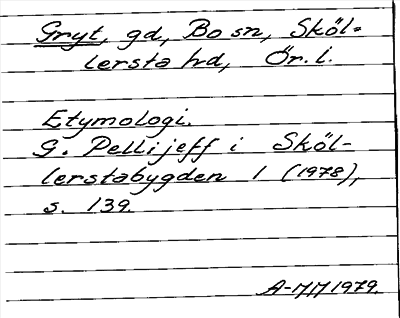 Gryt, gd, Bo sn, Sköl-
lersta hd, Ör. l.
Etymologi.
G. Pellijeff i Sköl-
lerstabygden 1 (1978),
s. 139.
1979.